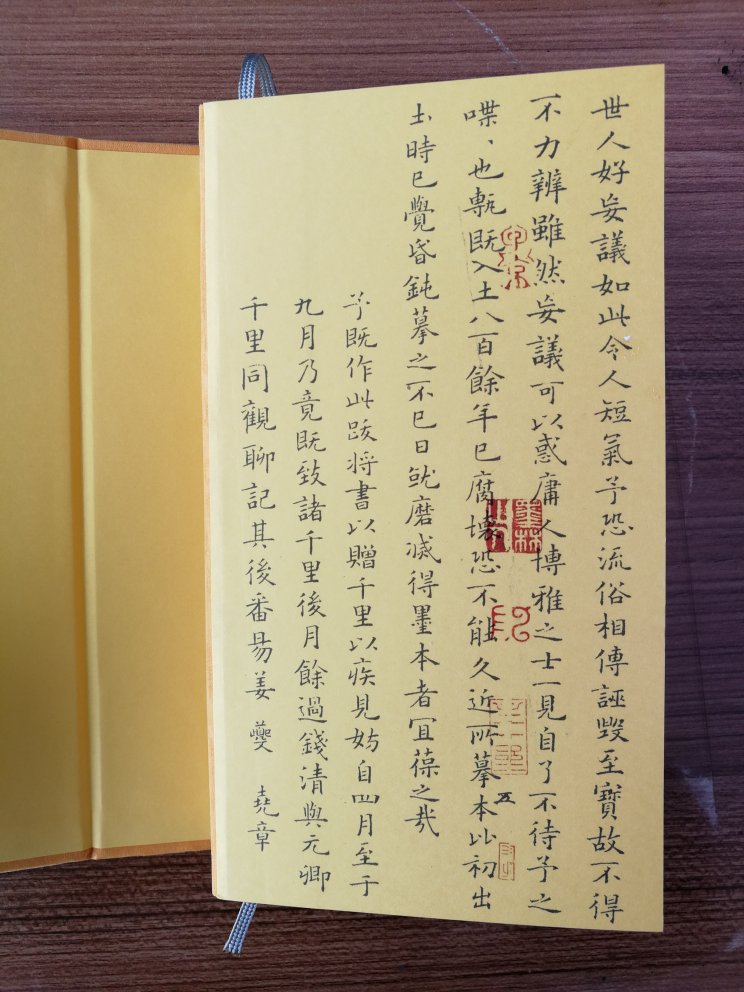 世人好妄議如此令人短氣予恐流俗相傳誣毀至寶故不得
不力辨雖然妄議可以惑庸人博雅之士一見自了不待予之
喋、也甎既入土八百餘年已腐壞恐不能久近所摹本比初出
土時已覺昏鈍摹之不已日就磨滅得墨本者宜葆之哉
予既作此跋將書以贈千里以疾見妨自四月至于
九月乃竟既致諸千里後月餘過錢清與元卿
千里同觀聊記其後番昜姜夔 堯章
五